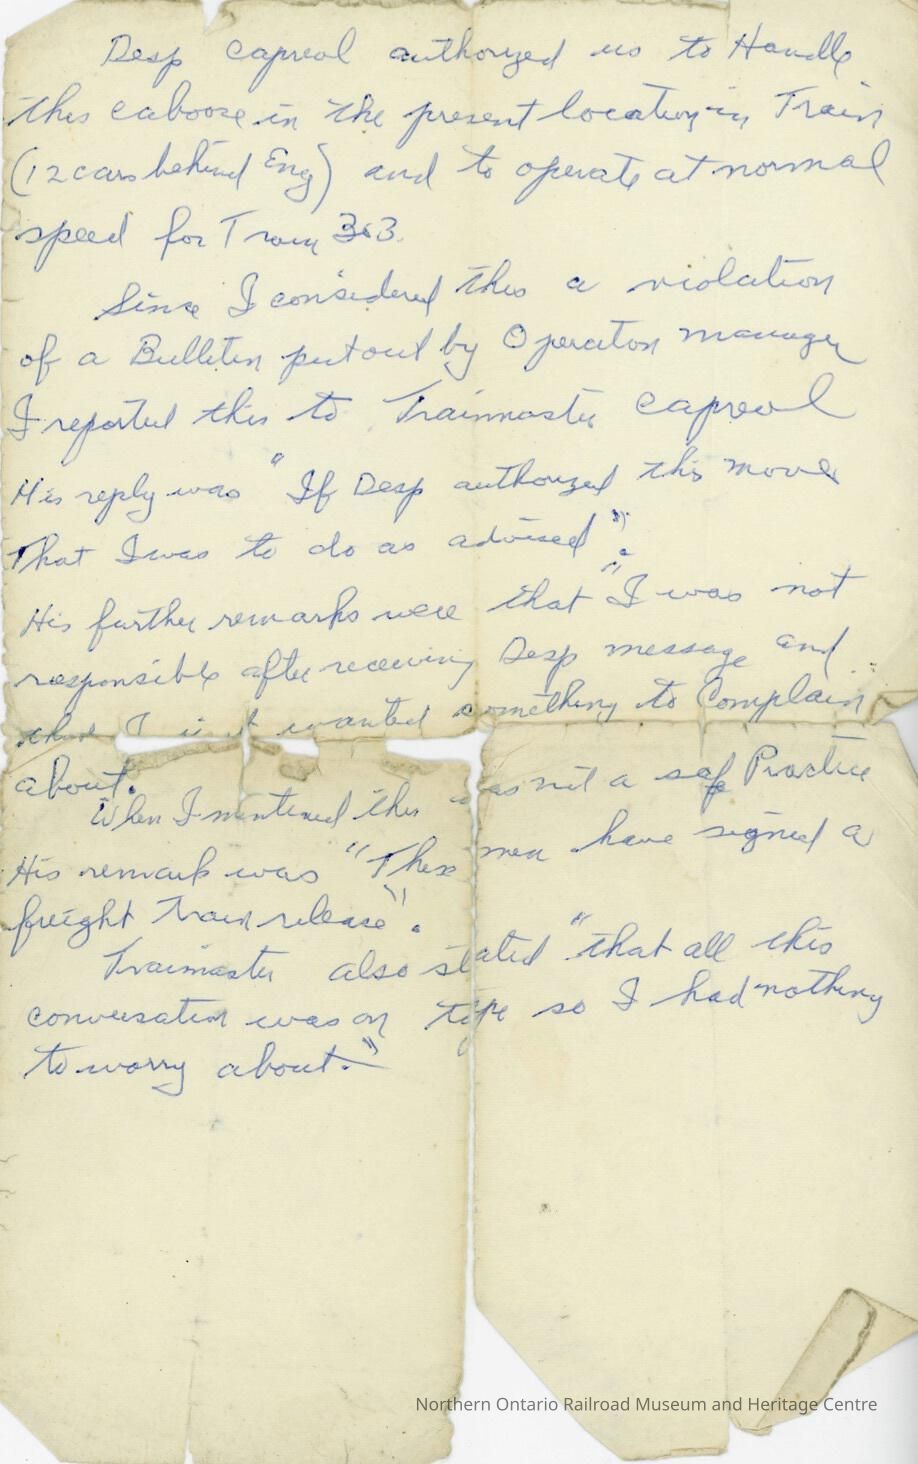 Desp Capreol authorized us to Handle
this caboose in the present location in Train
(12 cars behind Eng) and to operate at normal
speed for Train 363.
Since I considered this a violation
of a Bulletin put out by Operation manager
I reported this to Trainmaster Capreol
His reply was "If Desp authorized this move
That I was to do as advised".
His further remarks were that "I was not
responsible after receiving Desp message and
that I wanted something to Complain
about.
When I mentioned this was not a safe Practice
His remark was "These men have signed a
freight train release".
Trainmaster also stated "that all this
conversation was on tape so I had nothing
to worry about."
Northern Ontario Railroad Museum and Heritage Centre